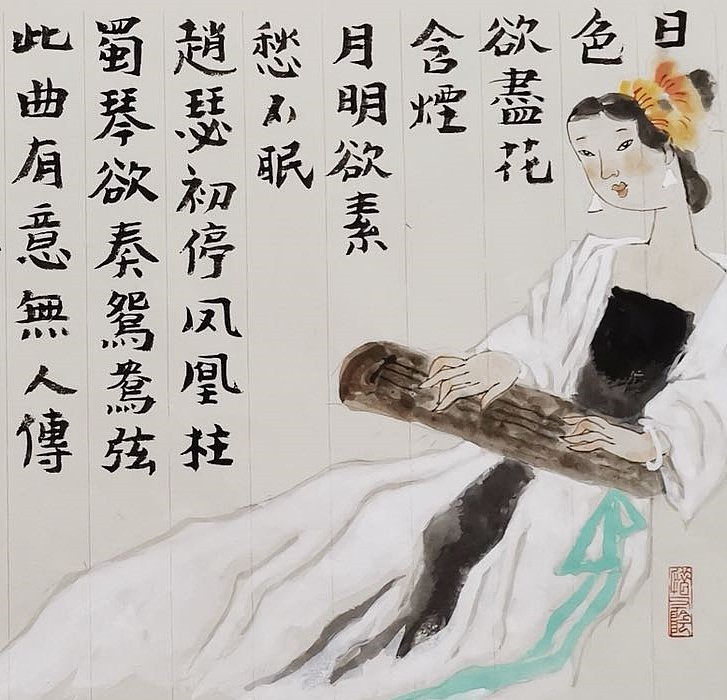 日
色
欲盡花
含煙
月明欲素
愁不眠
趙瑟初停凤凰柱
蜀琴欲奏鴛鴦弦
此曲有意無人傳